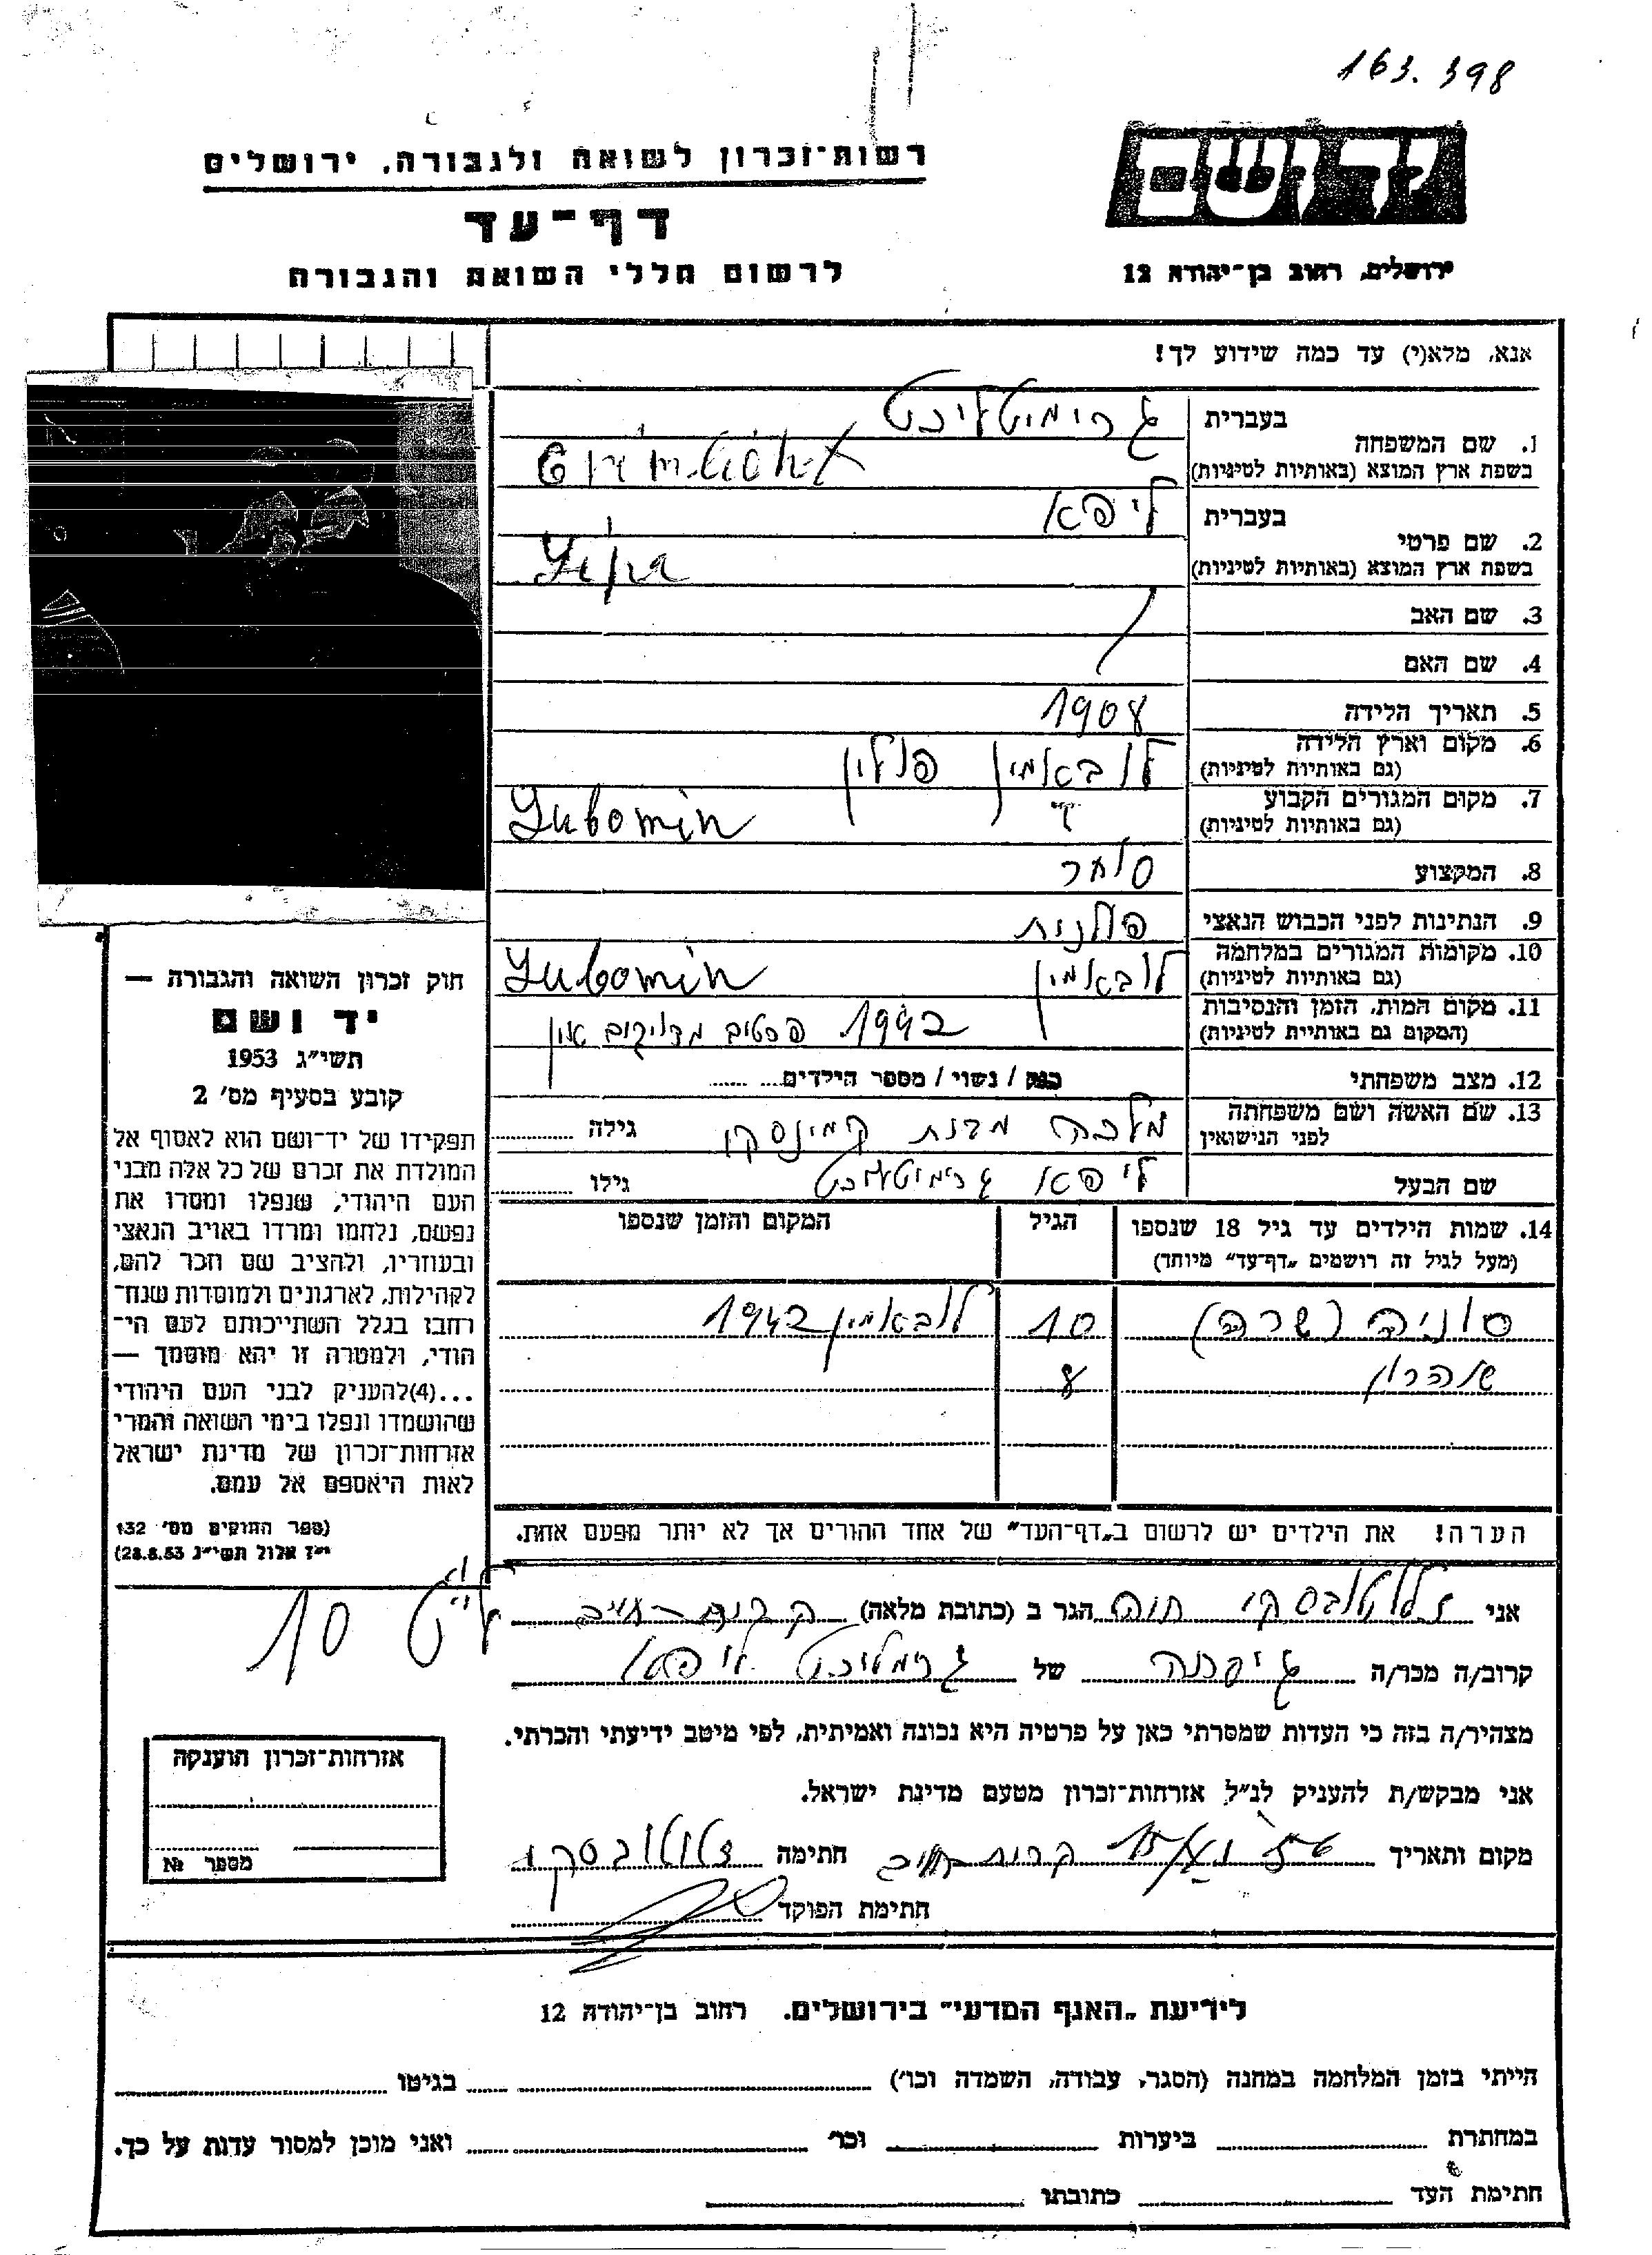 163.398
רשות־זכרון לשואה ולגבורה, ירושלים
דף־עד
לרשום חללי השואה והגבורה
יד ושם
ירושלים, רחוב בן־יהודה 12
אנא, מלא(י) עד כמה שידוע לך!
1. שם המשפחה
בעברית
בשפת ארץ המוצא (באותיות לטיניות)
2. שם פרטי
בעברית ליפא
בשפת ארץ המוצא (באותיות לטיניות) Lipa
3. שם האב
4. שם האם
5. תאריך הלידה 1908
6. מקום וארץ הלידה
(גם באותיות לטיניות) לובאמין פולין
7. מקום המגורים הקבוע
(גם באותיות לטיניות) Lubomin
8. המקצוע סוחר
9. הנתינות לפני הכבוש הנאצי פולנית
10. מקומות המגורים במלחמה
(גם באותיות לטיניות) לובאמין Lubomin
11. מקום המות, הזמן והנסיבות
(המקום גם באותיות לטיניות) 1942
12. מצב משפחתי רווק / נשוי / מספר הילדים
13. שם האשה ושם משפחתה
לפני הנישואין מלכה מבית קמינסקי גילה
שם הבעל ליפא גילו
14. שמות הילדים עד גיל 18 שנספו
(מעל לגיל זה רושמים „דף־עד" מיוחד)
הגיל
המקום והזמן שנספו
סוניה (שרה) 10 לובאמין 1942
אהרון 8
הערה! את הילדים יש לרשום ב„דף־העד" של אחד ההורים אך לא יותר מפעם אחת.
חוק זכרון השואה והגבורה —
יד ושם
תשי״ג 1953
קובע בסעיף מס׳ 2
תפקידו של יד־ושם הוא לאסוף אל
המולדת את זכרם של כל אלה מבני
העם היהודי, שנפלו ומסרו את
נפשם, נלחמו ומרדו באויב הנאצי
ובעוזריו, ולהציב שם וזכר להם,
לקהילות, לארגונים ולמוסדות שנח־
רבו בגלל השתייכותם לעם הי־
הודי, ולמטרה זו יהא מוסמך —
...(4)להעניק לבני העם היהודי
שהושמדו ונפלו בימי השואה והמרי
אזרחות־זכרון של מדינת ישראל
לאות היאספם אל עמם.
(ספר החוקים מס׳ 132
י״ז אלול תשי״ג 28.8.53)
10
אני זלוטובסקי חוה הגר ב (כתובת מלאה) קרית
קרוב/ה מכר/ה של ליפא
מצהיר/ה בזה כי העדות שמסרתי כאן על פרטיה היא נכונה ואמיתית, לפי מיטב ידיעתי והכרתי.
אני מבקש/ת להעניק לנ״ל אזרחות־זכרון מטעם מדינת ישראל.
מקום ותאריך קרית חתימה זלוטובסקי
חתימת הפוקד
אזרחות־זכרון הוענקה
מספר №
לידיעת „האגף המדעי" בירושלים. רחוב בן־יהודה 12
הייתי בזמן המלחמה במחנה (הסגר, עבודה, השמדה וכו׳) בגיטו
במחתרת ביערות וכו׳ ואני מוכן למסור עדות על כך.
חתימת העד כתובתו